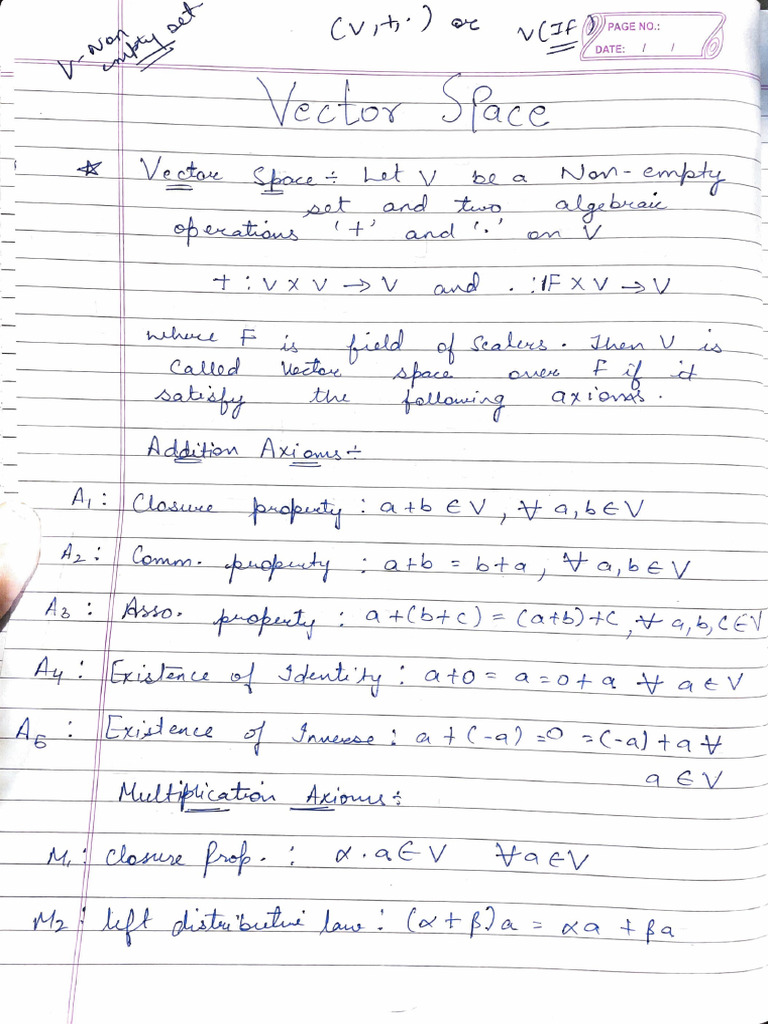 V-Non empty set
(V,+,·) or V(IF)
PAGE NO.:
DATE: / /
Vector Space
☆ Vector Space ÷ Let V be a Non-empty
set and two algebraic
operations '+' and '·' on V
+ : V X V → V and . : IF X V → V
where F is field of scalers. Then V is
called vector space over F if it
satisfy the following axioms.
Addition Axioms ÷
A1 : Closure property : a+b ∈ V , ∀ a,b ∈ V
A2 : Comm. property : a+b = b+a , ∀ a,b ∈ V
A3 : Asso. property : a+(b+c) = (a+b)+c , ∀ a,b,c ∈ V
A4 : Existence of Identity : a+0 = a = 0+a ∀ a ∈ V
A5 : Existence of Inverse : a + (-a) = 0 = (-a) + a ∀
a ∈ V
Multiplication Axioms ÷
M1 : Closure Prop. : α . a ∈ V ∀ a ∈ V
M2 : left distributive law : (α + β)a = αa + βa